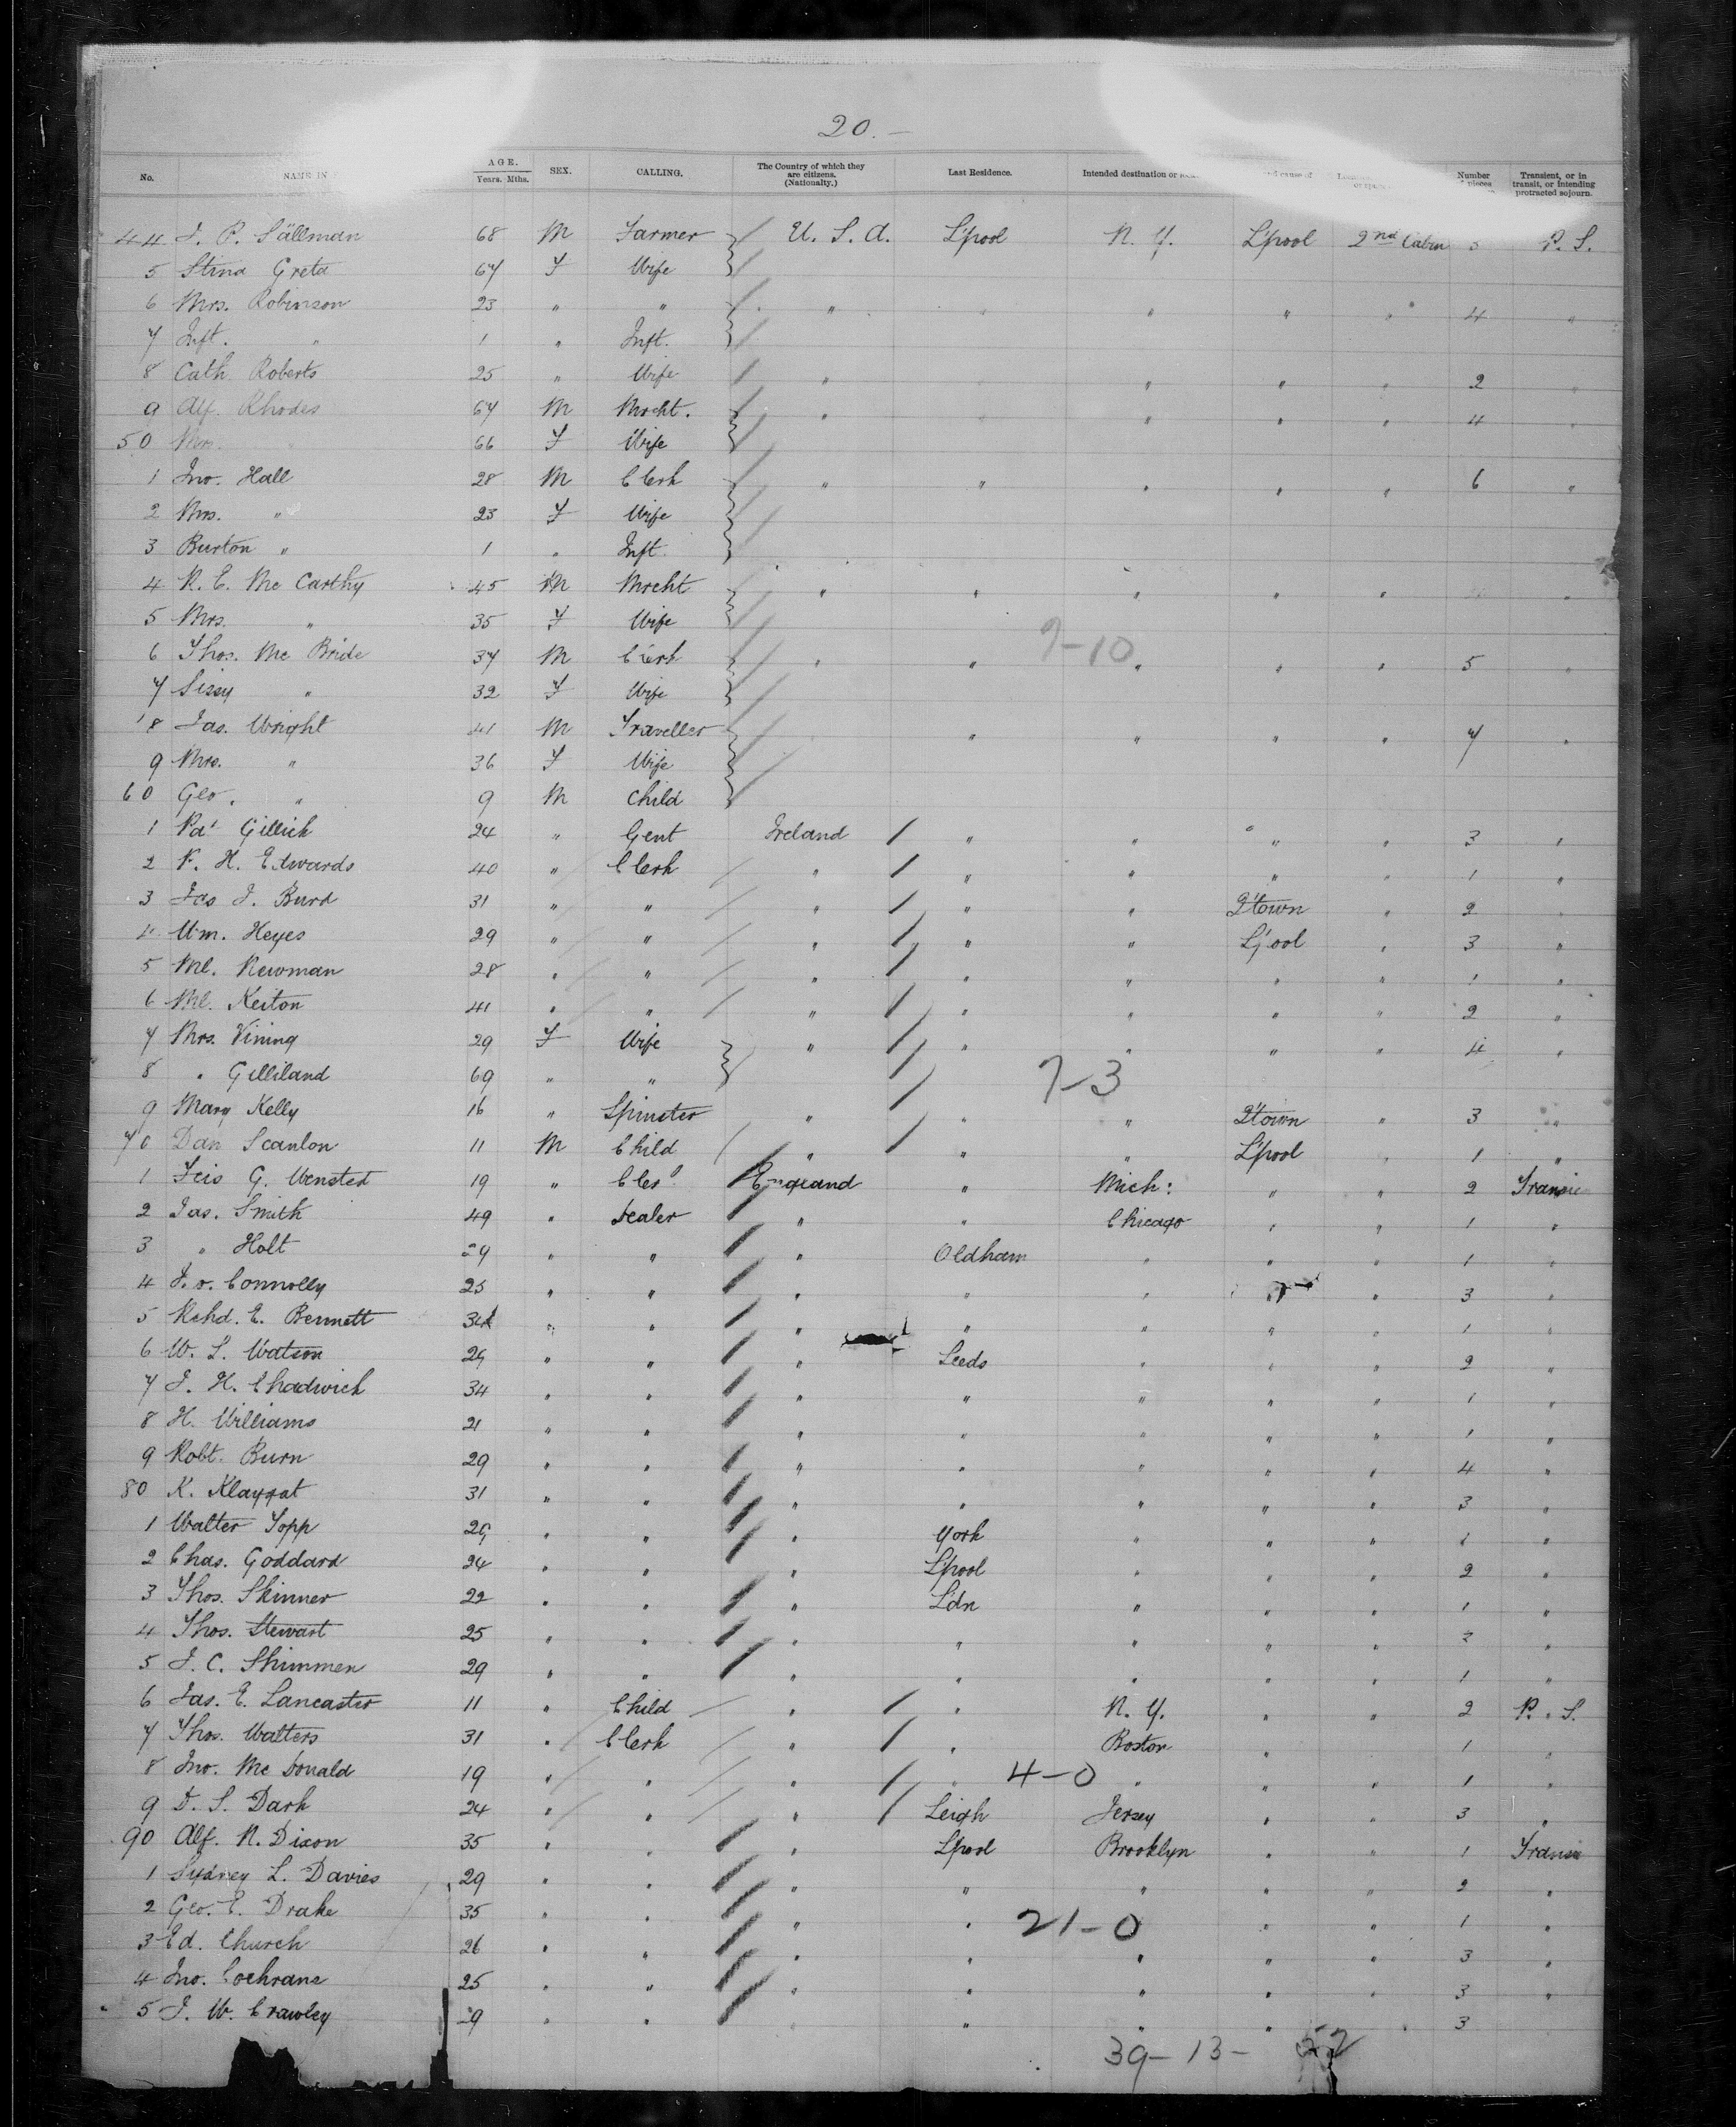 20.—
No. NAME IN AGE. Years. Mths. SEX. CALLING. The Country of which they are citizens. (Nationalty.) Last Residence. Intended destination or Number Transient, or in transit, or intending protracted sojourn.
44 J. P. Sällman 68 M Farmer U. S. A. L'pool N. Y. L'pool 2nd Cabin P. S.
5 Stina Greta 67 F Wife
6 Mrs. Robinson 23 " " " " " " 4 "
7 Inft. " 1 " Inft.
8 Cath. Roberts 25 " Wife " " " " 2
9 Alf. Rhodes 67 M Mrcht. " " " " 4 "
50 Mrs. " 66 F Wife
1 Jno. Hall 28 M Clerk " " " " " 6 "
2 Mrs. " 23 F Wife
3 Burton " 1 " Inft.
4 R. E. Mc Carthy 45 M Mrcht " " " " " "
5 Mrs. " 35 F Wife
7-10
6 Thos. Mc Bride 37 M Clerk " " " " " 5 "
7 Sissy " 32 F Wife
8 Jas. Wright 41 M Traveller " " " " 7 "
9 Mrs. " 36 F Wife
60 Geo. " 9 M Child
1 Pat Gillich 24 " Gent Ireland " " " " 3 "
2 F. H. Edwards 40 " Clerk " " " " " 1 "
3 Jas J. Burd 31 " " " " " Q'town " 2 "
4 Wm. Heyes 29 " " " " " L'pool " 3 "
5 Ml. Newman 28 " " " " " " " 1 "
6 Ml. Keiton 41 " " " " " " " 2 "
7 Mrs. Vining 29 F Wife " " " " " 4 "
8 " Gilliland 69 " "
7-3
9 Mary Kelly 16 " Spinster " " " Q'town " 3 "
70 Dan Scanlon 11 M Child " " " L'pool " 1 "
1 G. Wensted 19 " England " Mich: " " 2 Transie
2 Jas. Smith 49 " Dealer " " Chicago " 1 "
3 " Holt 29 " " " Oldham " " " 1 "
4 Connolly 25 " " " " " " 3 "
5 Rchd. E. Bennett 34 " " " " " " " 1 "
6 W. S. Watson 29 " " " Leeds " " " 2 "
7 J. H. Chadwick 34 " " " " " " " 1 "
8 H. Williams 21 " " " " " " 1 "
9 Robt. Burn 29 " " " " " " " 4 "
80 K. Klaygat 31 " " " " " " " 3 "
1 Walter Topp 29 " " " York " " " 1 "
2 Chas. Goddard 24 " " " L'pool " " " 2 "
3 Thos. Skinner 22 " " " Ldn " " " 1 "
4 Thos. Stewart 25 " " " " " " " 2 "
5 J. C. Shimmen 29 " " " " " " " 1 "
6 Jas. E. Lancaster 11 " Child " " N. Y. " " 2 P. S.
7 Thos. Walters 31 " Clerk " " Boston " 1 "
8 Jno. Mc Donald 19 " " " " 4-0 " " " 1 "
9 D. S. Dark 24 " " " Leigh Jersey " " 3 "
90 Alf. N. Dixon 35 " " " L'pool Brooklyn " " 1 Transie
1 Sydney L. Davies 29 " " " " " " " 2 "
2 Geo. E. Drake 35 " " " " 21-0 " " 1 "
3 Ed. Church 26 " " " " " " " 3 "
4 Jno. Cochrane 25 " " " " " " " 3 "
5 J. W. Crawley 29 " " " " " " 3
39-13- 52